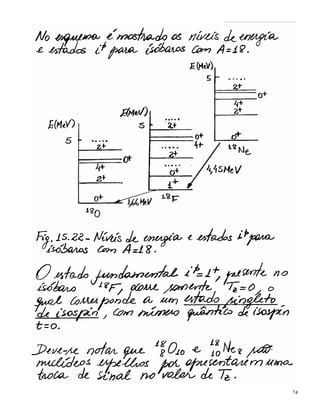 No esquema é mostrado os níveis de energia
e estados i+ para isóbaros com A=18.
E(MeV)
5
.....
2+
0+
4+
2+
0+
18Ne
E(MeV)
5
.....
2+
0+
4+
.....
2+
.....
0+
1+
18F
4,45MeV
E(MeV)
5
.....
2+
0+
4+
2+
0+
18O
1,66 MeV
Fig. 15.22 - Níveis de energia e estados i+ para
isóbaros com A=18.
O estado fundamental i+=1+, presente no
isóbaro 18F, ocorre somente Tz=0, o
qual corresponde a um estado singleto
de isospin, com número quântico de isospin
t=0.
Deve-se notar que 18 8 O10 e 18 10 Ne8 são
nuclídeos espelhos por apresentarem uma
troca de sinal no valor de Tz.
54